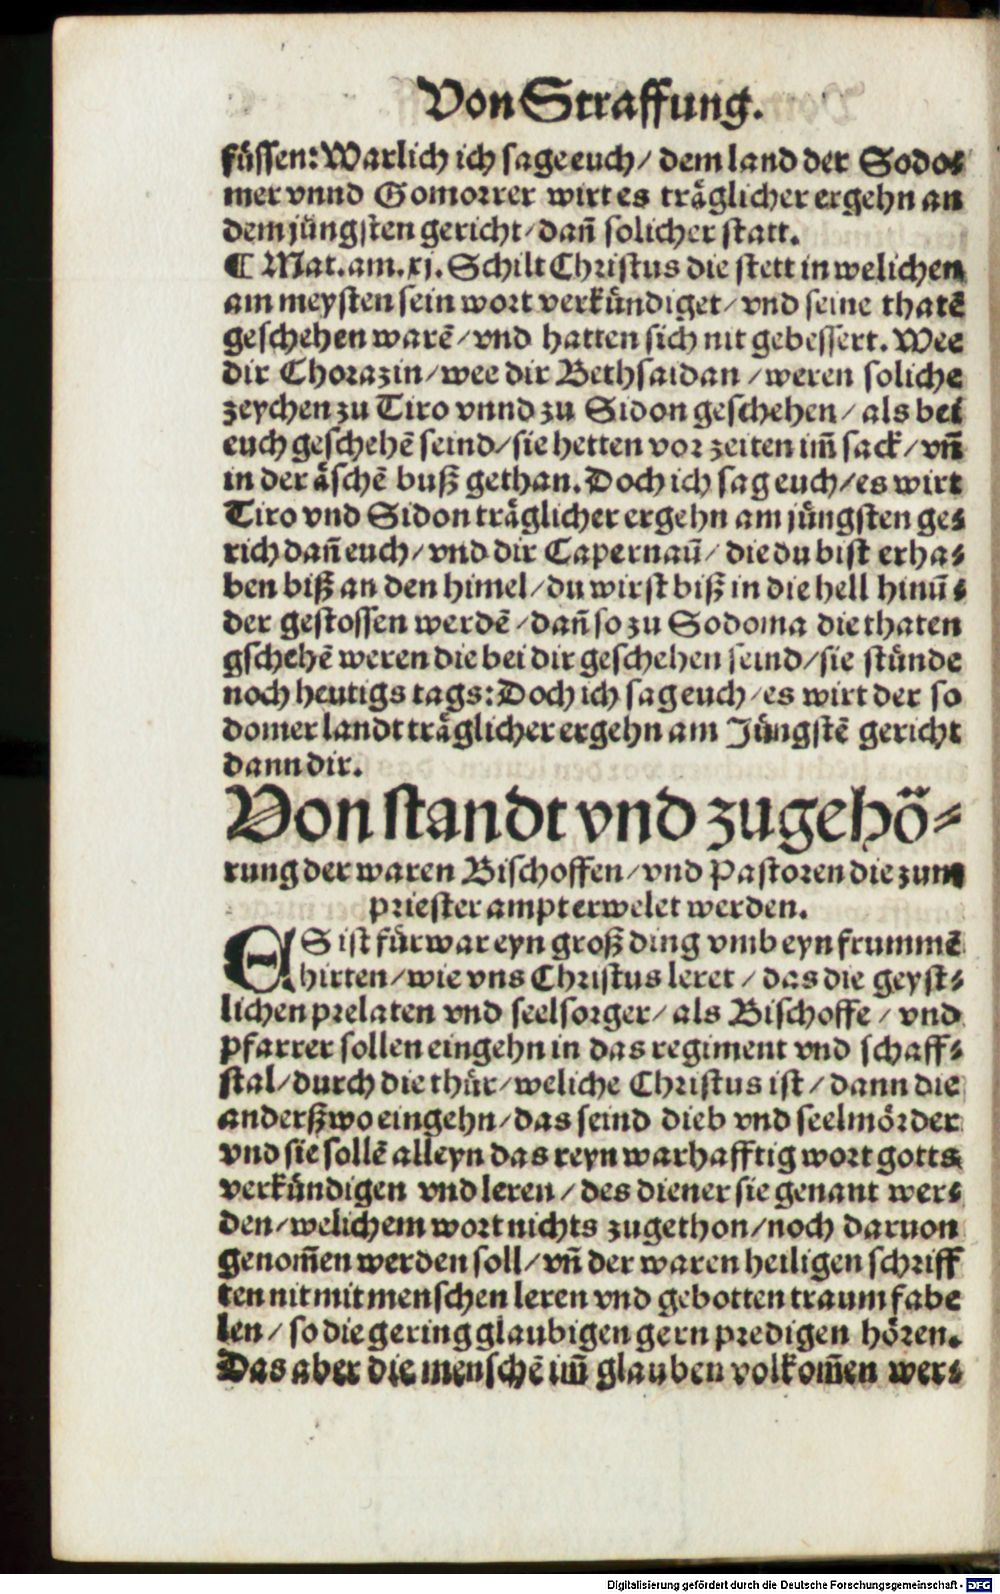 Von Straffung.
füssen: Warlich ich sage euch / dem land der Sodo⸗
mer vnnd Gomorrer wirt es träglicher ergehn an
dem jüngsten gericht / dañ solicher statt.
¶ Mat. am. xj. Schilt Christus die stett in welichen
am meysten sein wort verkündiget / vnd seine thatē
geschehen warē / vnd hatten sich nit gebessert. Wee
dir Chorazin / wee dir Bethsaidan / weren soliche
zeychen zu Tiro vnnd zu Sidon geschehen / als bei
euch geschehē seind / sie hetten vor zeiten im̄ sack / vñ
in der äschē buß gethan. Doch ich sag euch / es wirt
Tiro vnd Sidon träglicher ergehn am jüngsten ge⸗
rich dañ euch / vnd dir Capernaū / die du bist erha⸗
ben biß an den himel / du wirst biß in die hell hinū⸗
der gestossen werdē / dañ so zu Sodoma die thaten
gschehē weren die bei dir geschehen seind / sie stünde
noch heutigs tags: Doch ich sag euch / es wirt der so
domer landt träglicher ergehn am Jüngstē gericht
dann dir.
Von standt vnd zugehö⸗
rung der waren Bischoffen / vnd Pastoren die zum
priester ampt erwelet werden.
ES ist fürwar eyn groß ding vmb eyn frummē
hirten / wie vns Christus leret / das die geyst⸗
lichen prelaten vnd seelsorger / als Bischoffe / vnd
Pfarrer sollen eingehn in das regiment vnd schaff⸗
stal / durch die thür / weliche Christus ist / dann die
anderßwo eingehn / das seind dieb vnd seelmörder
vnd sie sollē alleyn das reyn warhafftig wort gotts
verkündigen vnd leren / des diener sie genant wer⸗
den / welichem wort nichts zugethon / noch daruon
genom̄en werden soll / vñ der waren heiligen schriff
ten nit mit menschen leren vnd gebotten traum fabe
len / so die gering glaubigen gern predigen hören.
Das aber die menschē im̄ glauben volkom̄en wer⸗
Digitalisierung gefördert durch die Deutsche Forschungsgemeinschaft - DFG